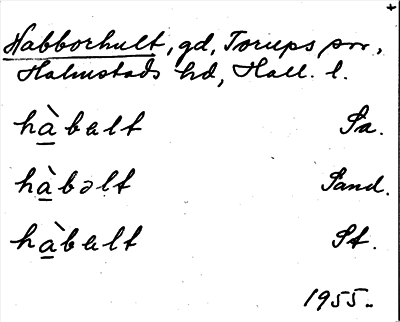 Habborhult, gd, Torups sn,
Halmstads hd, Hall. l.
hàbalt Sa.
hàbəlt Sand.
hàbalt St.
1955.